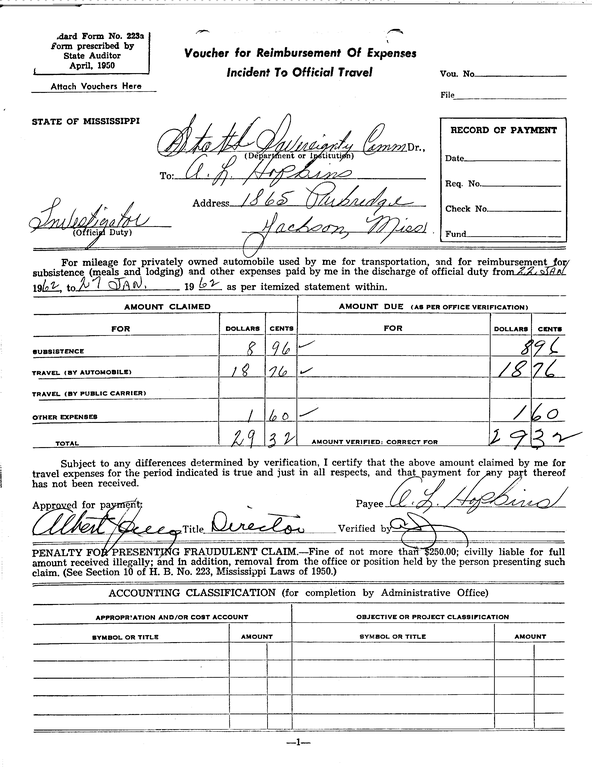 dard Form No. 223a
Form prescribed by
State Auditor
April, 1950
Attach Vouchers Here
Voucher for Reimbursement Of Expenses
Incident To Official Travel
Vou. No.
File
STATE OF MISSISSIPPI
State Sovereignty Comm Dr.,
(Department or Institution)
To: A. L. Hopkins
Address 1865
Jackson, Miss.
Investigator
(Official Duty)
RECORD OF PAYMENT
Date
Req. No.
Check No.
Fund
For mileage for privately owned automobile used by me for transportation, and for reimbursement for
subsistence (meals and lodging) and other expenses paid by me in the discharge of official duty from 22 JAN
1962, to 27 JAN. 1962 as per itemized statement within.
AMOUNT CLAIMED AMOUNT DUE (AS PER OFFICE VERIFICATION)
FOR DOLLARS CENTS FOR DOLLARS CENTS
SUBSISTENCE 8 96 ✓ 8 96
TRAVEL (BY AUTOMOBILE) 18 76 ✓ 18 76
TRAVEL (BY PUBLIC CARRIER)
OTHER EXPENSES 1 60 ✓ 1 60
TOTAL 29 32 AMOUNT VERIFIED: CORRECT FOR 29 32
Subject to any differences determined by verification, I certify that the above amount claimed by me for
travel expenses for the period indicated is true and just in all respects, and that payment for any part thereof
has not been received.
Approved for payment: Payee A. L. Hopkins
Albert Title Director Verified by
PENALTY FOR PRESENTING FRAUDULENT CLAIM.—Fine of not more than $250.00; civilly liable for full
amount received illegally; and in addition, removal from the office or position held by the person presenting such
claim. (See Section 10 of H. B. No. 223, Mississippi Laws of 1950.)
ACCOUNTING CLASSIFICATION (for completion by Administrative Office)
APPROPRIATION AND/OR COST ACCOUNT OBJECTIVE OR PROJECT CLASSIFICATION
SYMBOL OR TITLE AMOUNT SYMBOL OR TITLE AMOUNT
—1—